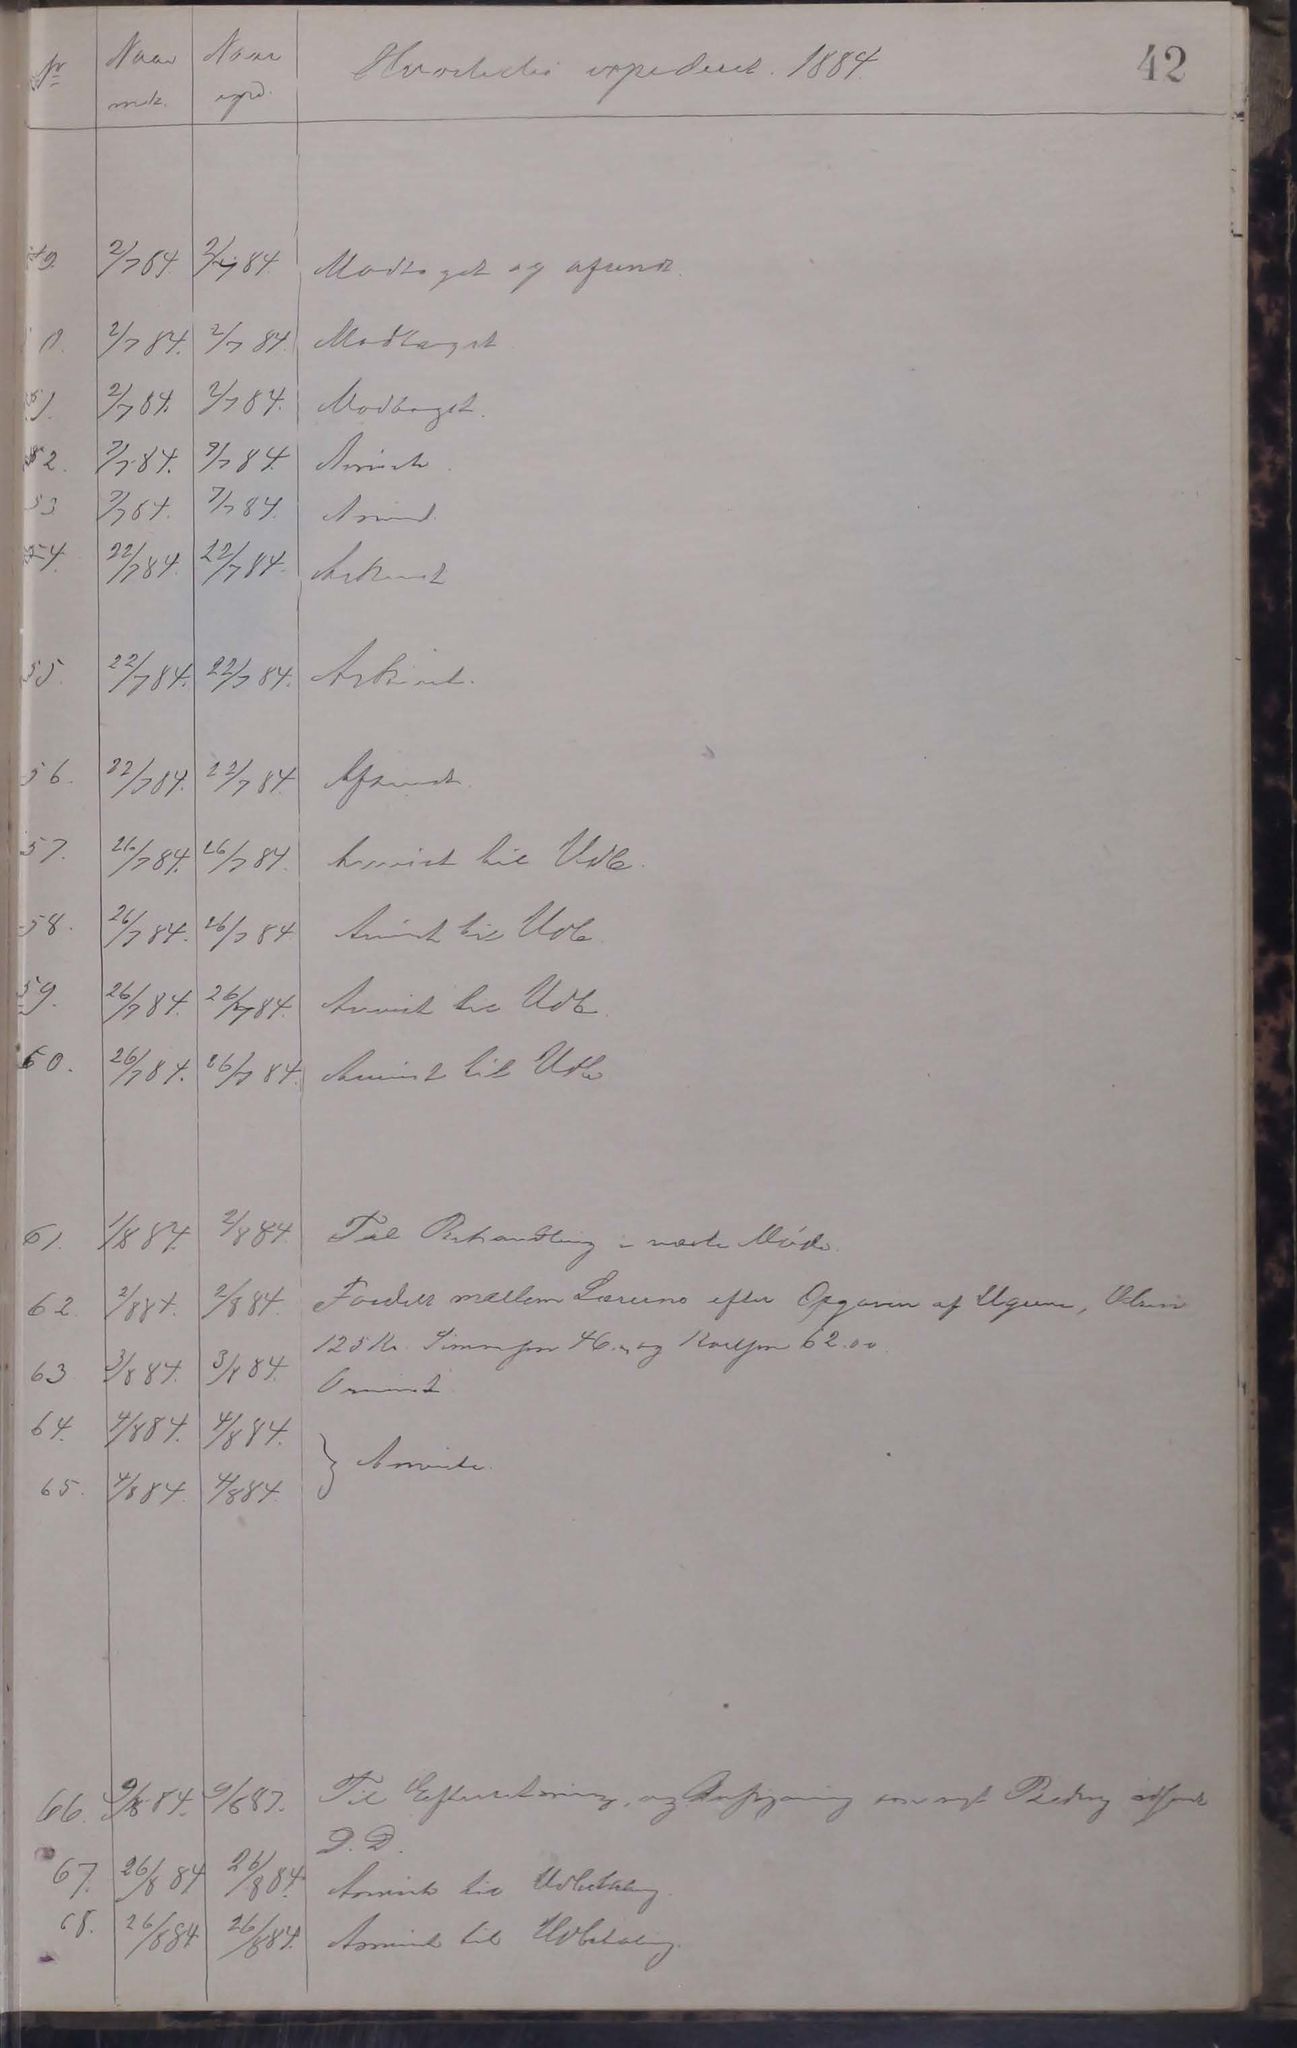 42
Nr Naar mdt. Naar expd. Hvorledes expederet. 1884.
49. 2/7 84. 2/7 84. Modtaget og afsendt.
50. 2/7 84. 2/7 84. Modtaget
51. 2/7 84. 2/7 84. Modtaget.
52. 7/7 84. 7/7 84. Anvist.
53 7/7 84. 7/7 84. Anvist.
54. 22/7 84. 22/7 84.
55. 22/7 84. 22/7 84.
56. 22/7 84. 22/7 84. Afsendt.
57. 26/7 84. 26/7 84. Anvist til Udb.
58. 26/7 84. 26/7 84 Anvist til Udb.
59. 26/7 84. 26/7 84. Anvist til Udb.
60. 26/7 84. 26/7 84. Anvist til Udb
61. 1/8 84. 2/8 84. Til Behandling i næste Møde.
62. 2/8 84. 2/8 84. Fordelt mellem Lærerne efter Opgaven af Ugerne, Olsen
125 Kr. 46. og 62.00.
63 3/8 84. 3/8 84. Anvist.
64. 4/8 84. 4/8 84.
} Anviste.
65. 4/8 84. 4/8 84.
66. 9/8 84. 9/8 87. Til Efterretning, og
D. D.
67. 26/8 84 26/8 84. Anvist til Udbetaling.
68. 26/8 84 26/8 84. Anvist til Udbetaling.